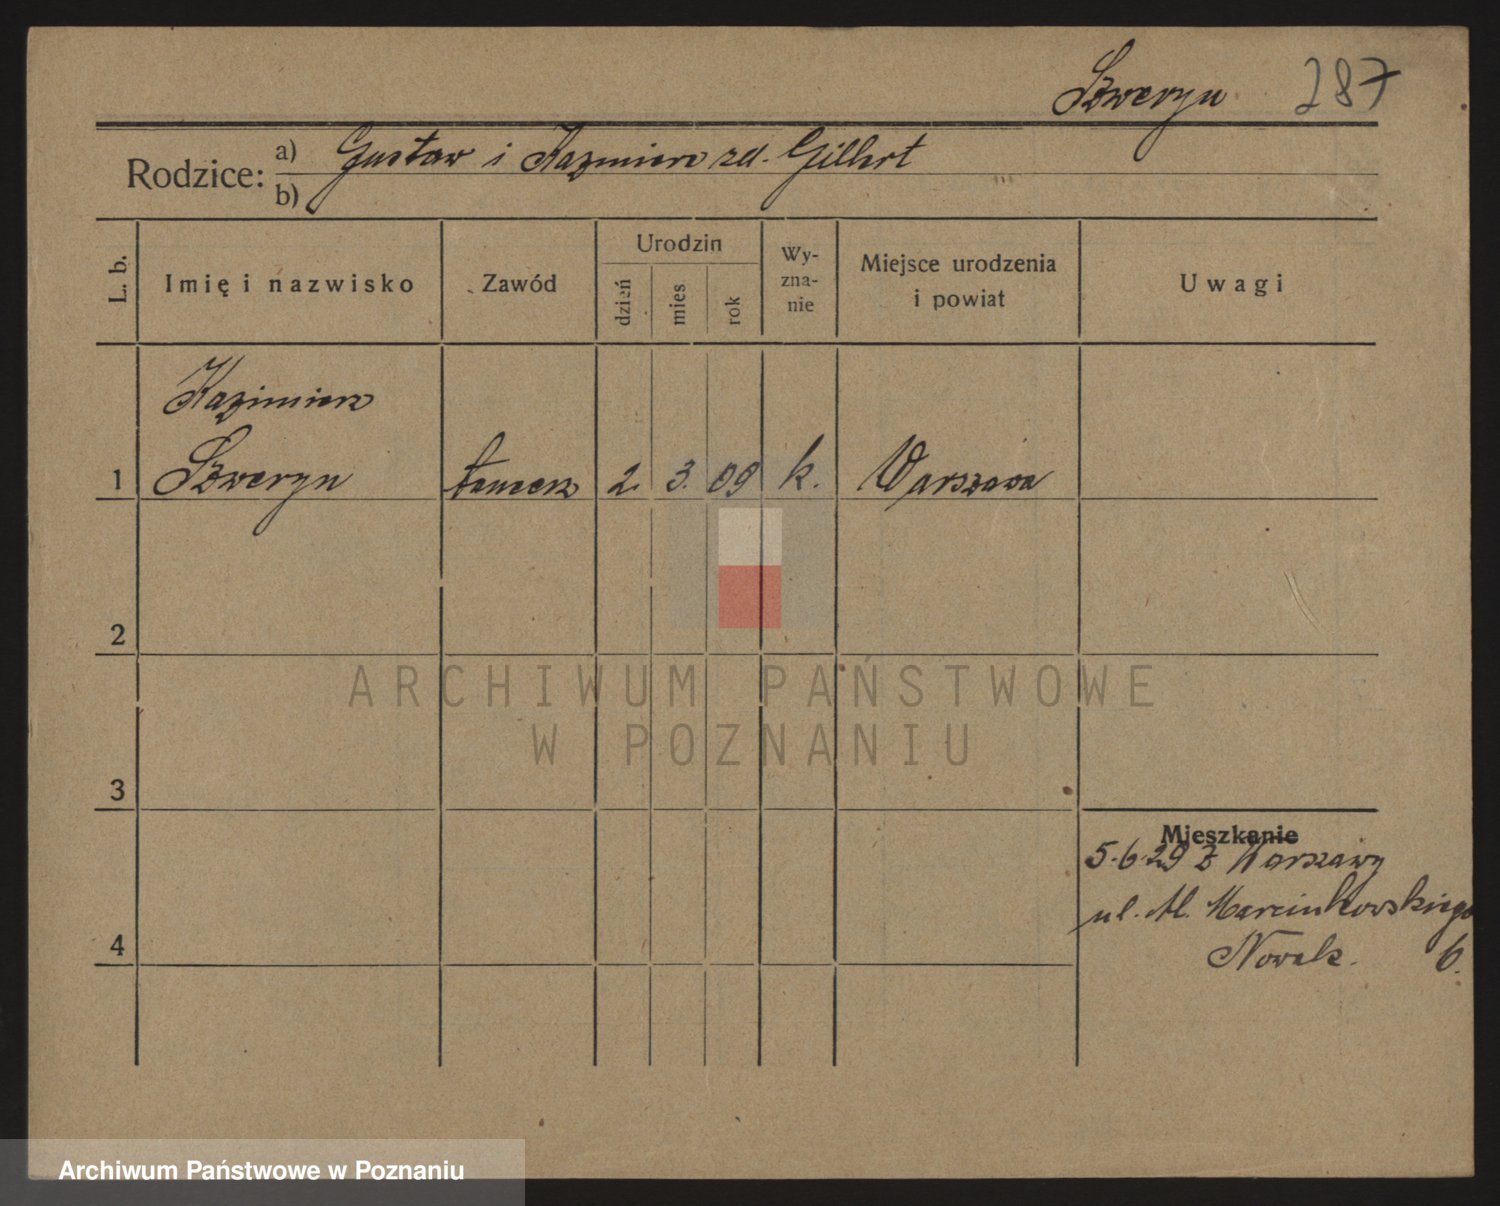 Szweryn 287
Rodzice: a) Gustaw i Kazimiera zd. Gilbert
b)
L. b. Imię i nazwisko Zawód Urodzin dzień mies rok Wyznanie Miejsce urodzenia i powiat Uwagi
Kazimierz
1 Szweryn tancerz 2. 3. 09 k. Warszawa
2
3
Mieszkanie
5.6.29 z Warszawy
ul. Al. Marcinkowskiego
4 Nowak. 6.
ARCHIWUM PAŃSTWOWE
W POZNANIU
Archiwum Państwowe w Poznaniu